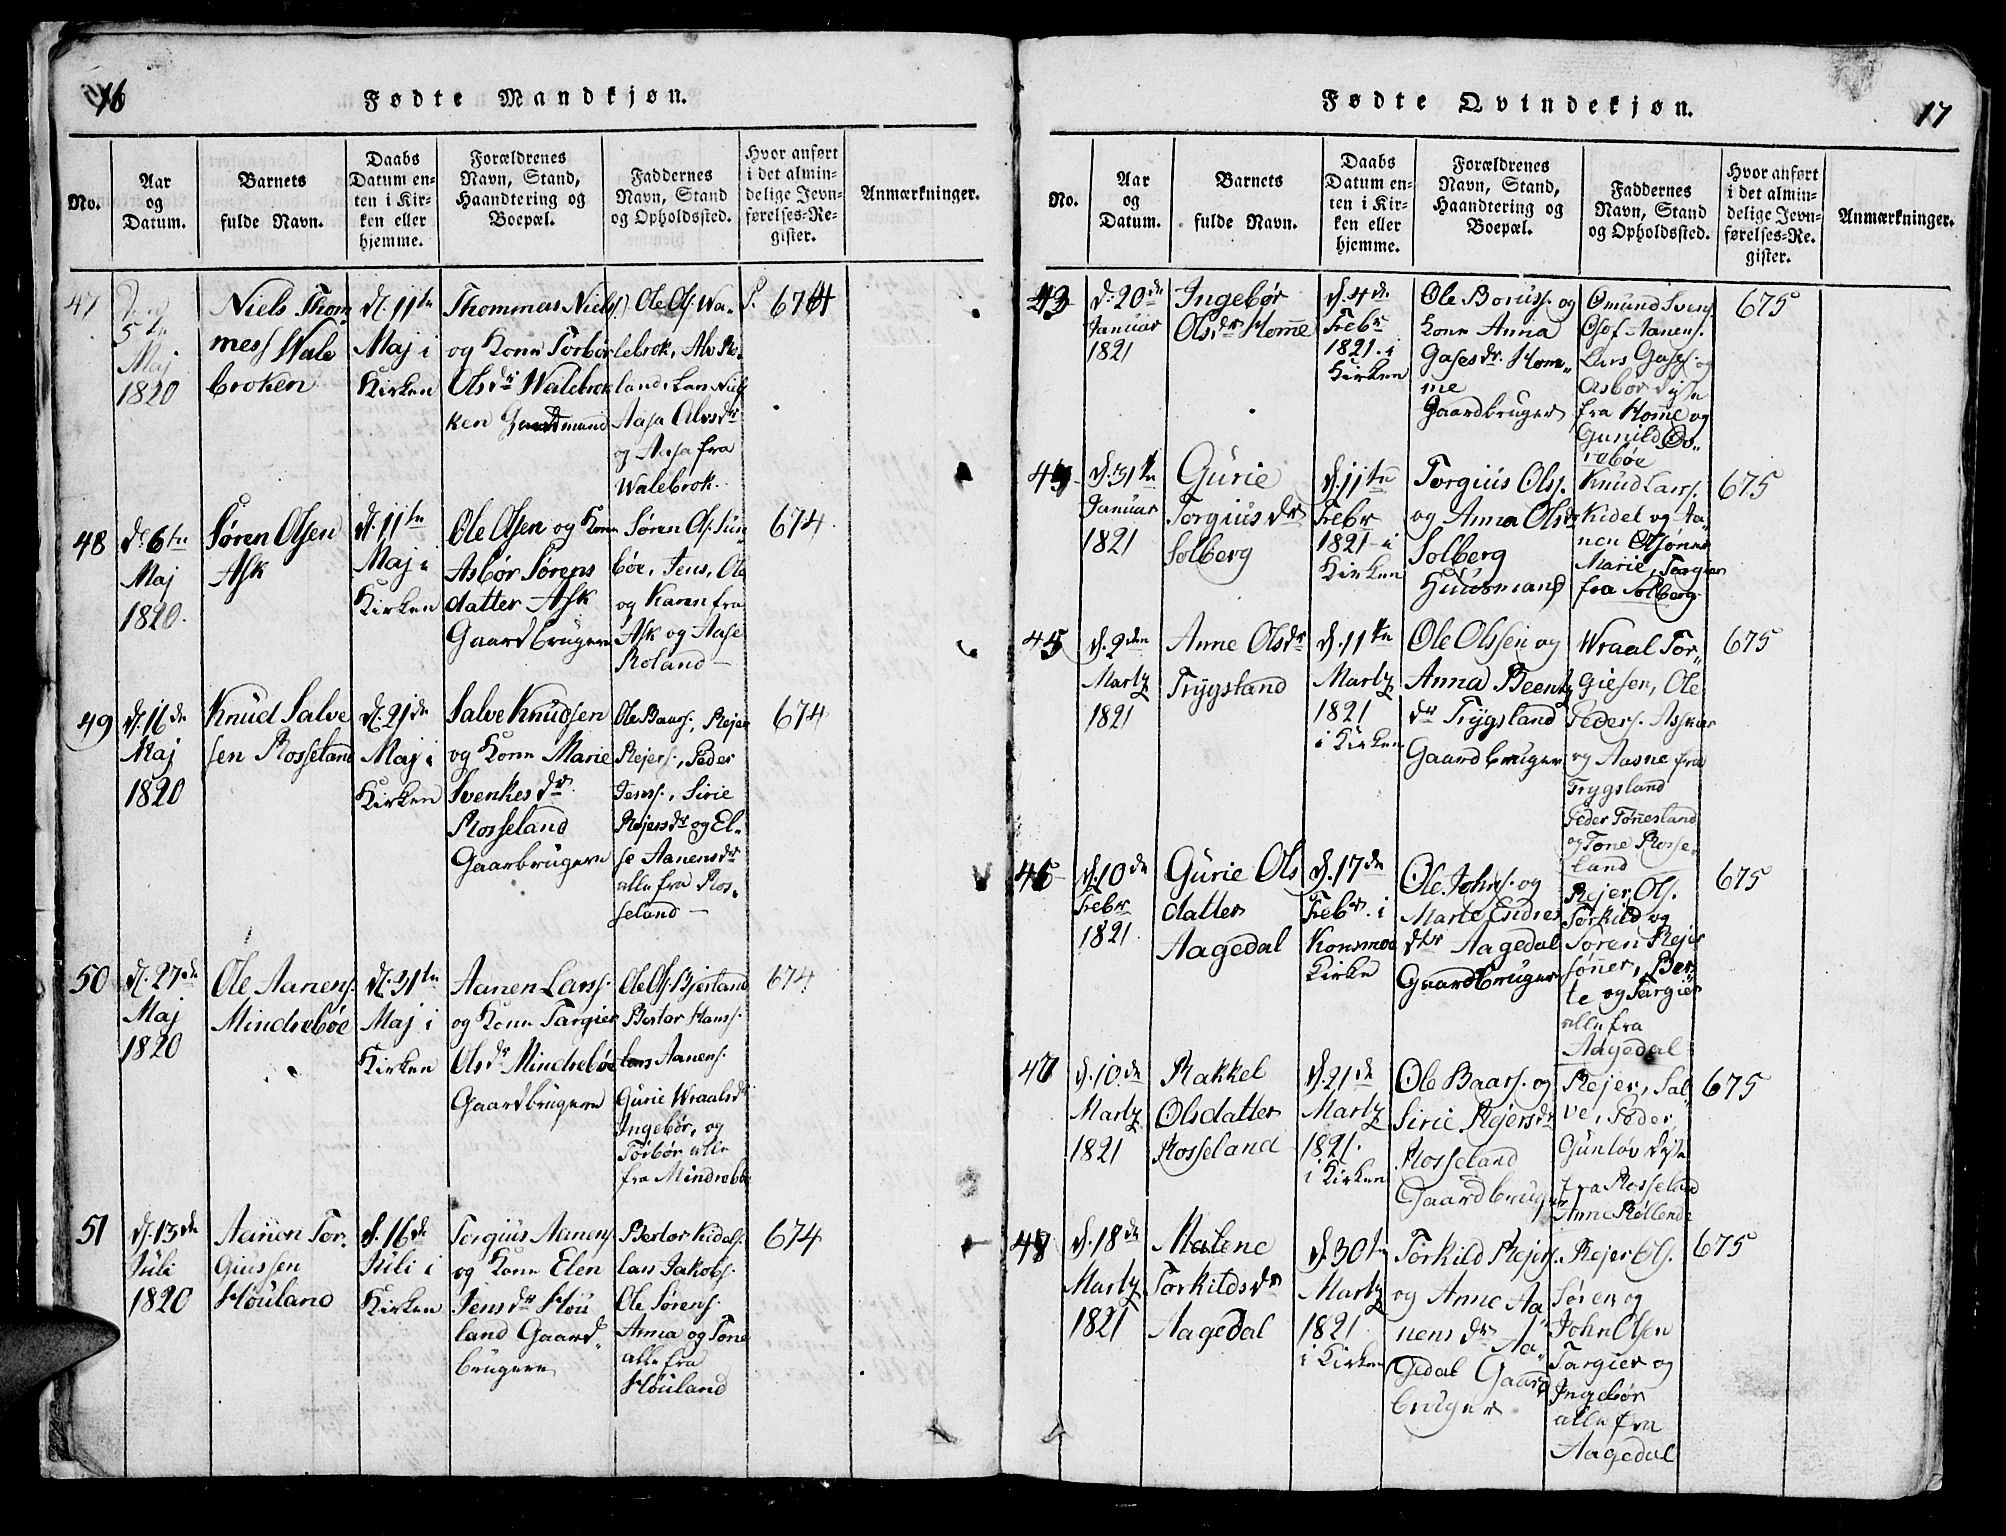 16
Fødte Mandkjøn.
No.
Aar
og
Datum.
Barnets
fulde Navn.
Daabs
Datum en-
ten i Kir-
ken eller
hjemme.
Forældrenes
Navn, Stand,
Haandtering og
Boepæl.
Faddernes
Navn, Stand
og Opholdssted.
Hvor anført
i det almin-
delige Jevn-
førelses-Re-
gister.
Anmærkninger.
47
5te
Maj
1820
Niels Thom
mess Wale
broken
d. 11te
Maj i
Kirken
Thommas Niels
og Kone Torbør
Olsdr Walebrok
ken Gaardmand
Ole Ols. Wa-
lebrok, Alv Ro-
land, Lars Niels
Aasa Alvsdr
og Aasa fra
Walebrok.
674
48
d. 6te
Maj
1820.
Søren Olsen
Ask
d. 11te
Maj i
Kirken
Ole Olsen og Kone
Asbør Sørens
datter Ask
Gaardbrugere
Søren Ols. Sun
bøe, Jens, Ole
og Karen fra
Ask og Aase
Roland
674
49
d. 16de
Maj
1820
Knud Salve
sen Rosseland
d. 21de
Maj i
Kirken
Salve Knudsen
og Kone Marie
Svenkesdr
Rosseland
Gaarbrugere
Ole Baars., Rejer
Rejers., Peder
Jenss., Sirie
Rejersdr og El-
se Aanensdr
alle fra Ros-
seland
674
50
d. 27de
Maj
1820
Ole Aanens.
Mindrebøe
d. 31te
Maj i
Kirken
Aanen Larss.
og Kone Targier
Olsdr Mindrebøe
Gaardbrugere
Ole Ols. Bjerland
Bertor Hanss.
Lars Aanens.
Gurie Wraalsdr
Ingebør, og
Torbør alle
fra Mindrebøe
674
51
d. 13de
Juli
1820
Aanen Tor-
giussen
Høuland
d. 16de
Juli i
Kirken
Torgius Aanens
og Kone Elen
Jensdr Høu
land Gaard
brugere
Bertor Kidels.
Lars Jakobs.
Ole Sørens.
Anna og Tone
alle fra
Høuland
674
17
Fødte Qvindekjøn.
No.
Aar
og
Datum.
Barnets
fulde Navn.
Daabs
Datum en-
ten i Kir-
ken eller
hjemme.
Forældrenes
Navn, Stand,
Haandtering og
Boepæl.
Faddernes
Navn, Stand
og Opholdssted.
Hvor anført
i det almin-
delige Jevn-
førelses-Re-
gister.
Anmærkninger.
43
d. 20de
Januar
1821
Ingebør
Olsdr Homme
d. 4de
Febr
1821. i
Kirken
Ole Boruss. og
Kone Anna
Gasesdr. Hom-
me
Gaardbruger
Omund Svens.
Olof Aanens.
Lars Gases. og
Asbor
fra Homme og
Gunild
675
d. 31te
Januar
1821
Gurie
Torgiusdr
Solberg
d. 11te
Febr
1821 i
Kirken
Torgius Olss.
og Anna Olsdr
Solberg
Huusmand
Knud Larss.
Kidel og Aa-
nen Olsønner
Marie, Targier
fra Solberg.
675
45
d. 9den
Martz
1821
Anne Olsdr
Trygsland
d. 11te
Martz
1821
i Kirken
Ole Olssen og
Anna Beents
dr Trygsland
Gaardbruger
Wraal Tor-
giesen, Ole
Peders.
og Aasne fra
Trygsland
Peder Tonnesland
og Tone Rosse-
land
675
46
d. 10de
Febr
1821
Gurie Ols
datter
Aagedal
d. 17de
Febr. i
Konsmoe
Kirke
Ole Johns. og
Marte Endres
dtr Aagedal
Gaardbruger
Rejer Ols.
Torkild og
Søren Rejer
sønner, Ber-
te og Targier
alle fra
Aagedal
675
47
d. 10de
Martz
1821
Rakkel
Olsdatter
Rosseland
d. 21de
Martz
1821.
i Kirken
Ole Baars. og
Sirie Rejersdr
Rosseland
Gaardbruger
Rejer, Sal-
ve, Peder,
Gunløv
fra Rosseland
Anne Røllend
675
48
d. 18de
Martz
1821
Malene
Torkildsdr
Aagedal
d. 30te
Martz
1821
i Kirken
Torkild Rejers.
og Anne Aa-
nensdr Aa-
gedal Gaard
bruger
Rejer Ols.
Søren og
John Olsen
Targier og
Ingebør
alle fra
Aagedal
675